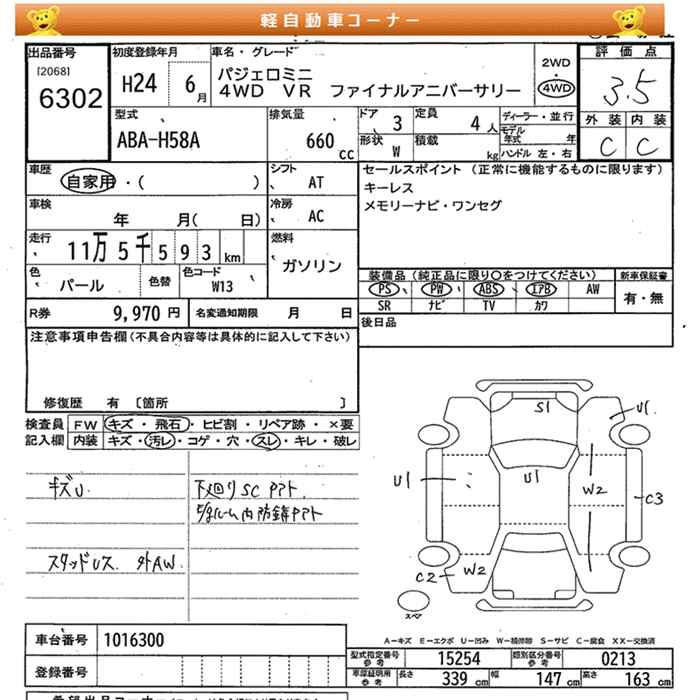 軽自動車コーナー
出品番号 初度登録年月 車名・グレード 2WD 評価点
[2068] 6302 H24 6月 パジェロミニ 4WD 3.5
4WD VR ファイナルアニバーサリー
型式 排気量 ドア 3 定員 4人 ディーラー・並行 外装 内装
ABA-H58A 660cc 形状 W 積載 kg モデル年式 年 C C
ハンドル 左・右
車歴 自家用・( ) シフト AT セールスポイント (正常に機能するものに限ります)
キーレス
車検 年 月( 日) 冷房 AC メモリーナビ・ワンセグ
走行 11万5千593km 燃料 ガソリン
色 パール 色替 色コード W13 装備品(純正品に限り○をつけてください) 新車保証書
PS PW ABS エアB AW 有・無
SR ナビ TV カワ
R券 9,970円 名変通知期限 月 日 後日品
注意事項申告欄(不具合内容等は具体的に記入して下さい)
修復歴 有 [箇所 ]
検査員 FW キズ・飛石・ヒビ割・リペア跡・×要
記入欄 内装 キズ・汚レ・コゲ・穴・スレ・キレ・破レ
キズU. 下廻りSCアト.
内防錆アト
スタッドレス 外AW.
S1 U1
U1 U1 W2 C3
C2 W2
スペア
A-キズ E-エクボ U-凹み W-補修跡 S-サビ C-腐食 XX-交換済
車台番号 1016300
型式指定番号 参考 15254 類別区分番号 参考 0213
登録番号 車庫証明用 参考 長さ 339cm 幅 147cm 高さ 163cm
希望出品コーナー